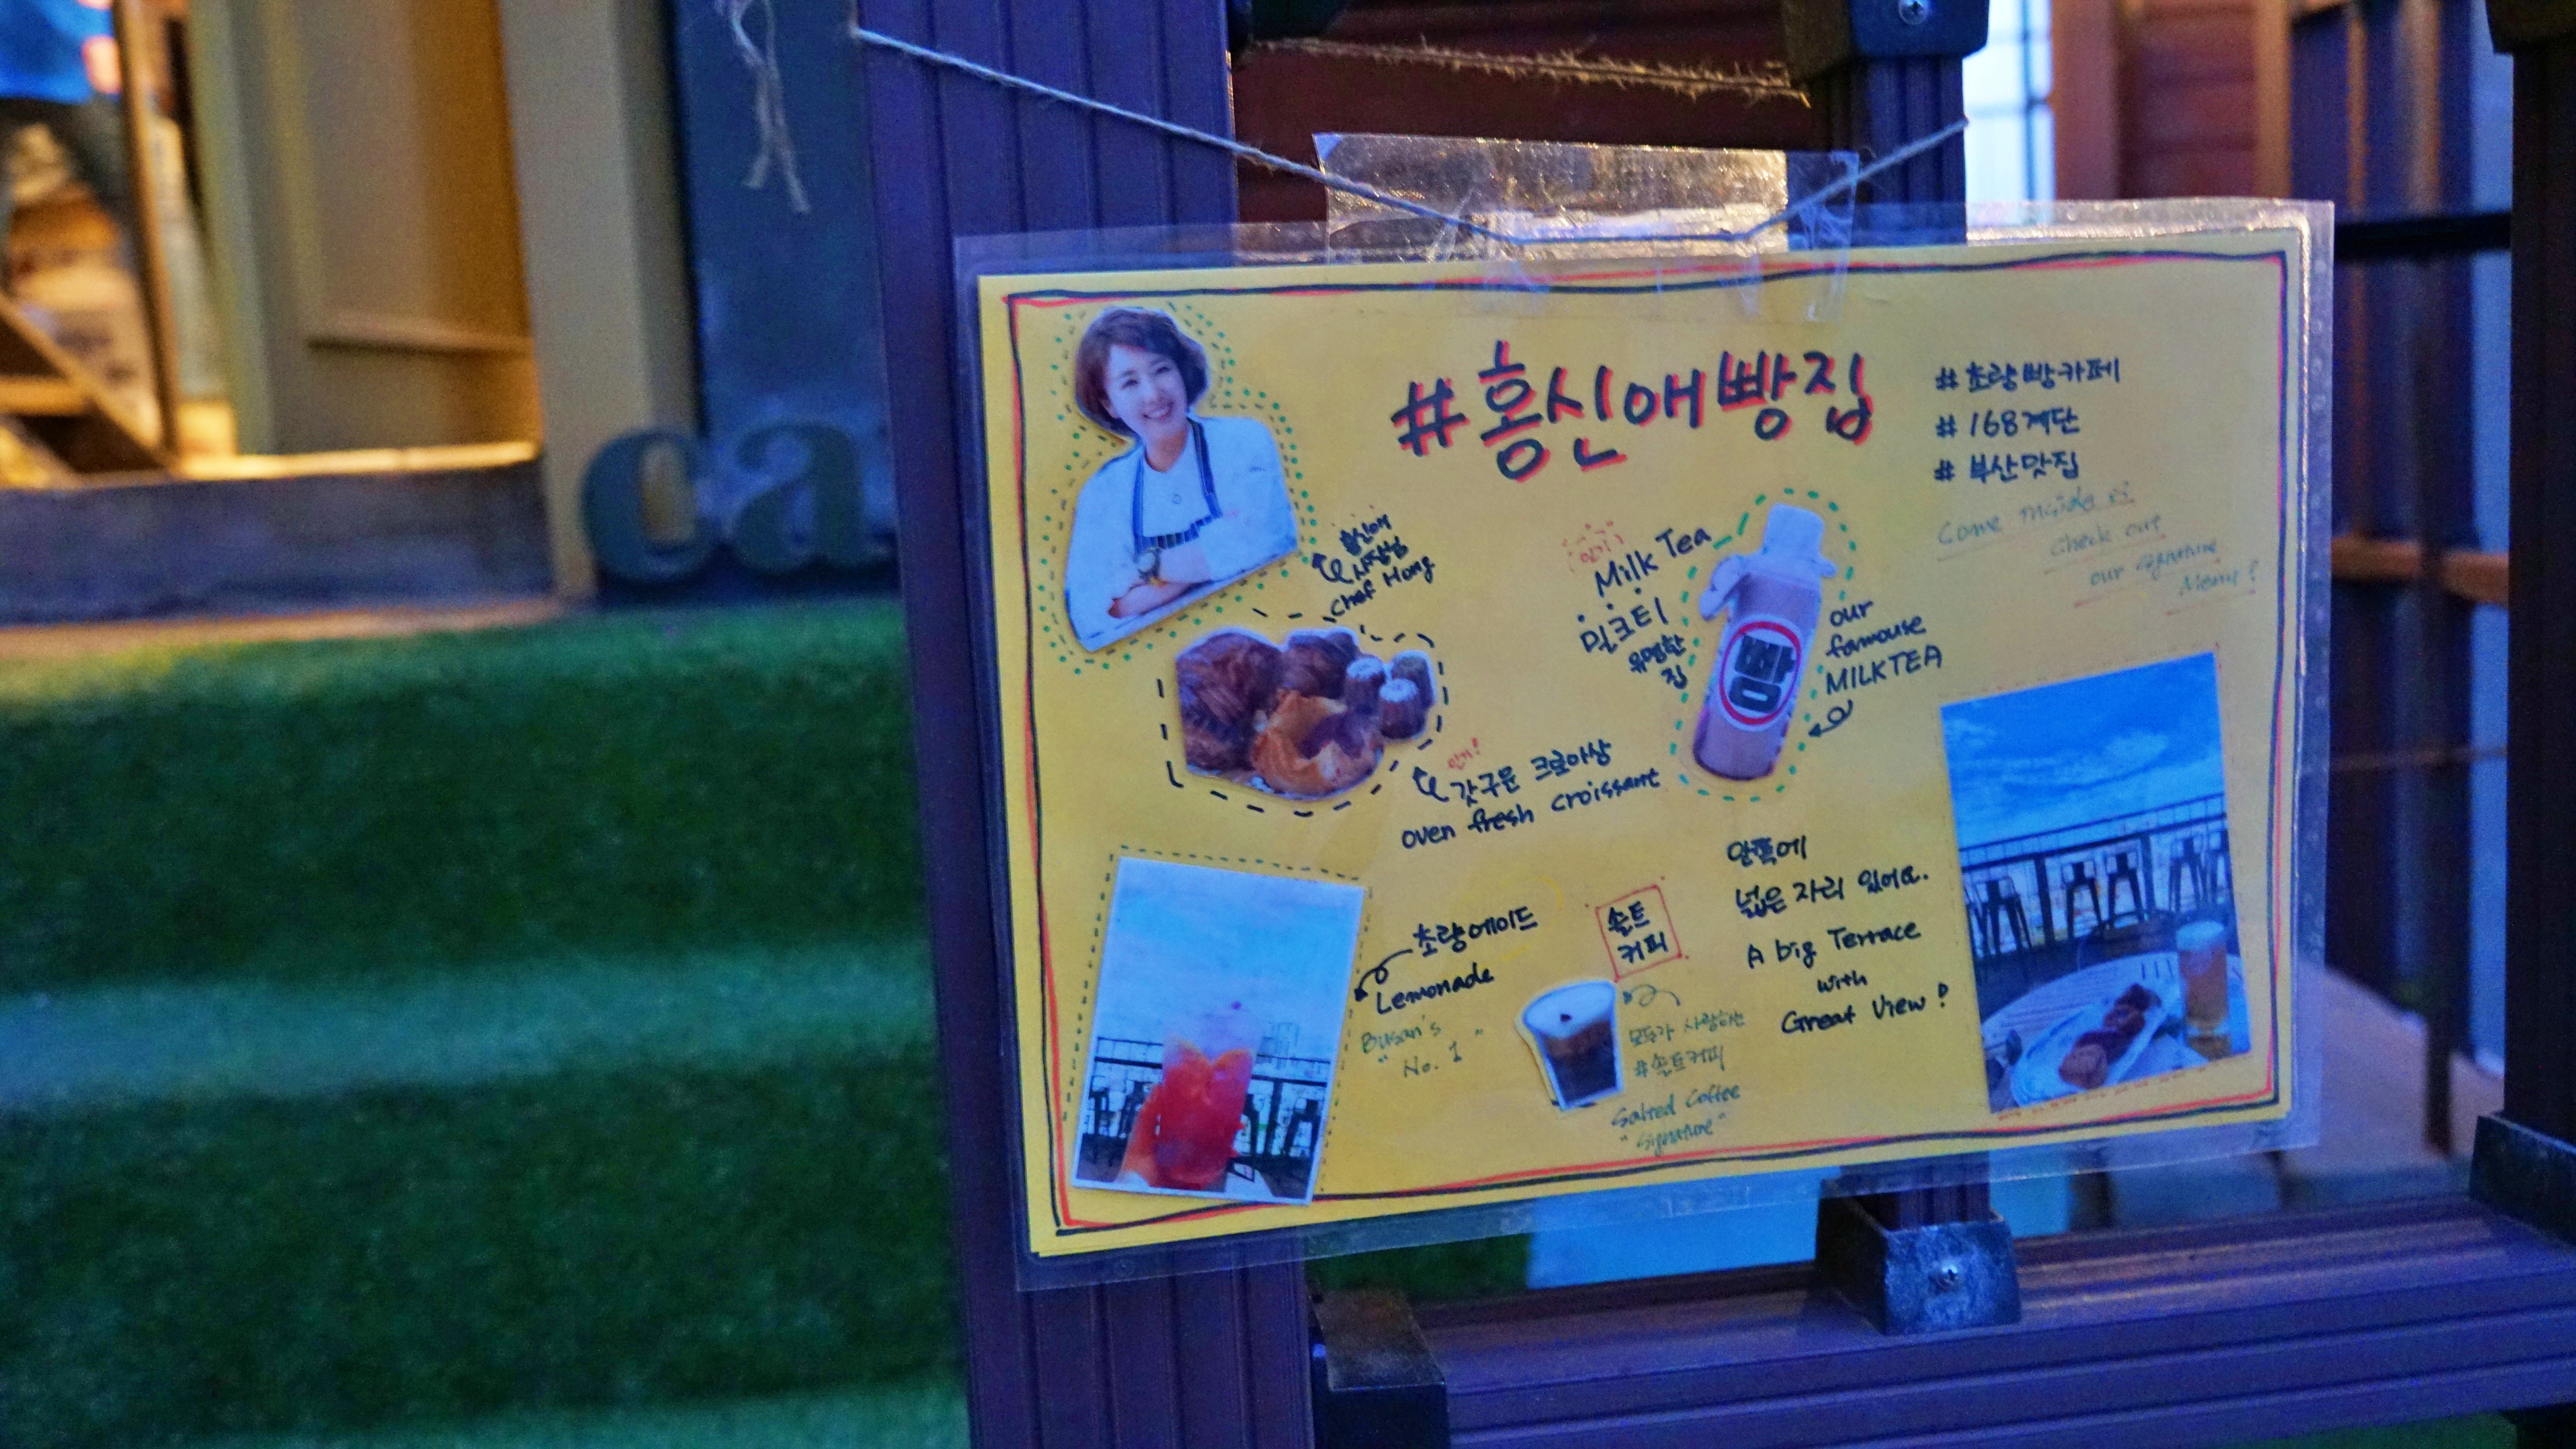 ca
#홍신애빵집
#초량빵카페
#168계단
#부산맛집
Come inside &
Check out
our signature
Menu!
홍신애
사장님
Chef Hong
인기!
Milk Tea
밀크티
유명한
집
빵
our
famouse
MILKTEA
인기!
갓구운 크로아상
oven fresh croissant
초량에이드
Lemonade
Busan's
"No. 1"
솔트
커피
모두가 사랑하는
#솔트커피
Salted Coffee
"Signature"
안쪽에
넓은 자리 있어요.
A big Terrace
with
Great View!